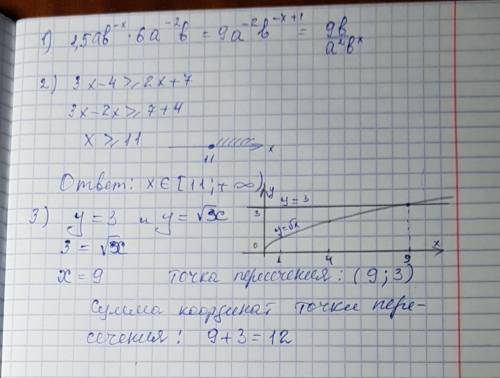 1) 1,5ab⁻ˣ · 6a⁻²b = 9a⁻²b⁻ˣ⁺¹ = 9b/a²bˣ
2) 3x-4 ⩾ 2x+7
3x-2x ⩾ 7+4
x ⩾ 11
11 x
Ответ: x∈[11;+∞)
3) y=3 и y=√x
3=√x
x=9
y
3 y=3
y=√x
0 1 4 9 x
точка пересечения: (9;3)
Сумма координат точки пере-
сечения: 9+3=12